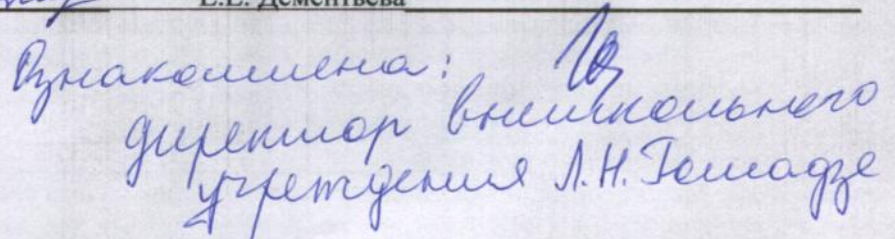 Е.Е. Дементьева
Ознакомлена:
директор внешкольного
учреждения Л.Н.